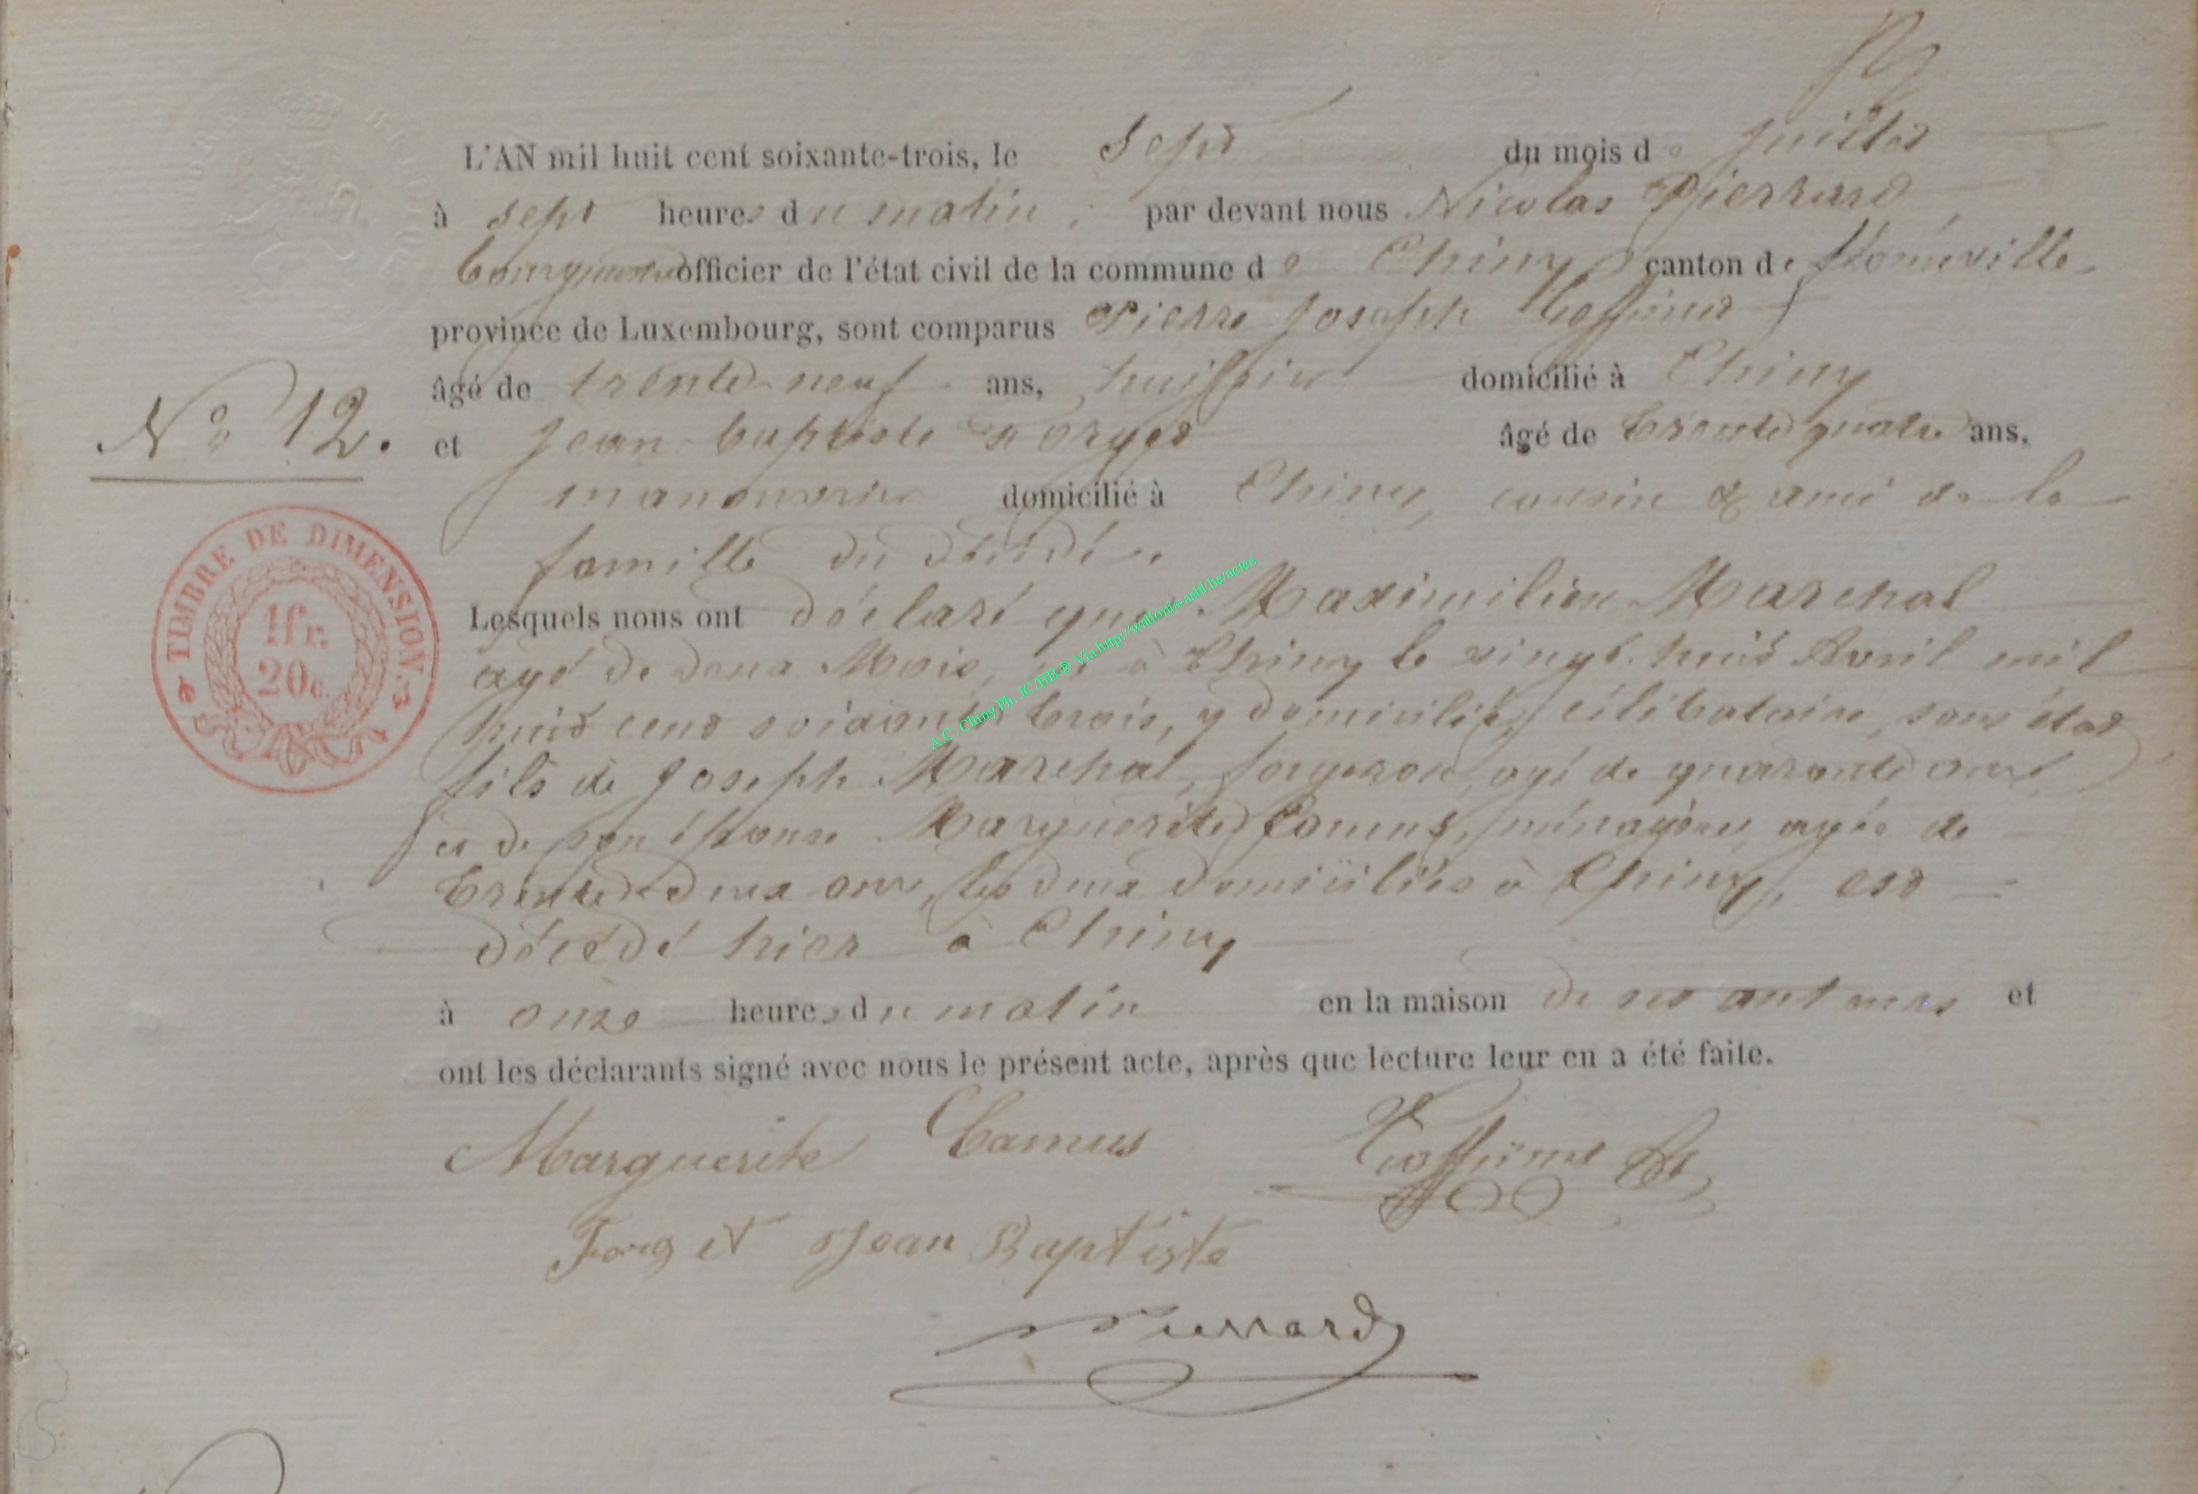 L'AN mil huit cent soixante-trois, le sept du mois de juillet
à sept heures du matin, par devant nous Nicolas Pierrard
bourgmestre officier de l'état civil de la commune de Chiny canton de Florenville
province de Luxembourg, sont comparus Pierre Joseph
âgé de trente-neuf ans, huissier domicilié à Chiny
et Jean-baptiste Forget âgé de trente quatre ans,
manouvrier domicilié à Chiny, cousin & ami de la
famille du décédé
Lesquels nous ont déclaré que Maximilien Marchal
agé de deux Mois, né à Chiny le vingt-huit Avril mil
huit cent soixante trois, y domicilié, célibataire, sans état
fils de Joseph Marchal, forgeron, agé de quarante ans,
et de son épouse Marguerite Camus, ménagère, agée de
trente-deux ans, les deux domiciliés à Chiny, est
décédé hier à Chiny
à onze heures du matin en la maison de ses et
ont les déclarants signé avec nous le présent acte, après que lecture leur en a été faite.
Marguerite Camus
Forget Jean Baptiste
Pierrard
No 12.
TIMBRE DE DIMENSION.
1fr.
20c.
A.C. Chiny Ph. JC/HB-P. Vix http://wallonia-asbl.be/actes